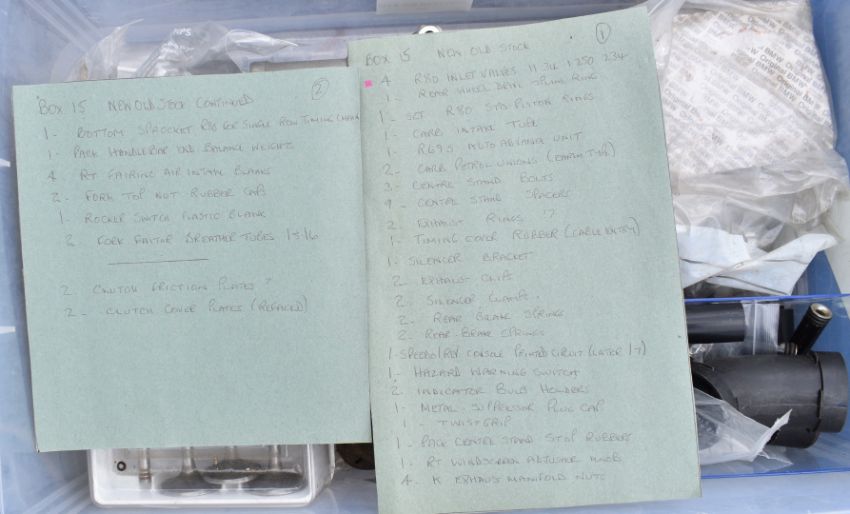 ①
BOX 15 NEW OLD STOCK
4 R80 INLET VALVES 11 34 1 250 234
1- REAR WHEEL DRIVE SPLINE RING
1- SET R80 STD PISTON RINGS
1- CARB INTAKE TUBE
1- R69S AUTO ADVANCE UNIT
2- CARB PETROL UNIONS (EARLY TYPE)
3- CENTRE STAND BOLTS
9- CENTRE STAND SPACERS
2- EXHAUST RINGS ?
1- TIMING COVER RUBBER (CABLE ENTRY)
1- SILENCER BRACKET
2 EXHAUST CLIPS
2- SILENCER CLAMPS.
2- REAR BRAKE SPRINGS
2- REAR BRAKE SPRINGS
1- SPEEDO/REV CONSOLE PRINTED CIRCUIT (LATER 1?)
1- HAZARD WARNING SWITCH
2 INDICATOR BULB HOLDERS
1- METAL SUPPRESSOR PLUG CAP
1- TWISTGRIP
1- PACK CENTRE STAND STOP RUBBERS
1- RT WINDSCREEN ADJUSTER KNOB
4- K EXHAUST MANIFOLD NUTS
②
BOX 15 NEW OLD STOCK CONTINUED
1- BOTTOM SPROCKET R80 FOR SINGLE ROW TIMING CHAIN
1- PACK HANDLEBAR END BALANCE WEIGHTS
4 RT FAIRING AIR INTAKE BLANKS
2- FORK TOP NUT RUBBER CAPS
1- ROCKER SWITCH PLASTIC BLANK
2 FORK GAITOR BREATHER TUBES
2- CLUTCH FRICTION PLATES ?
2- CLUTCH COVER PLATES (REFACED)
Original BMW